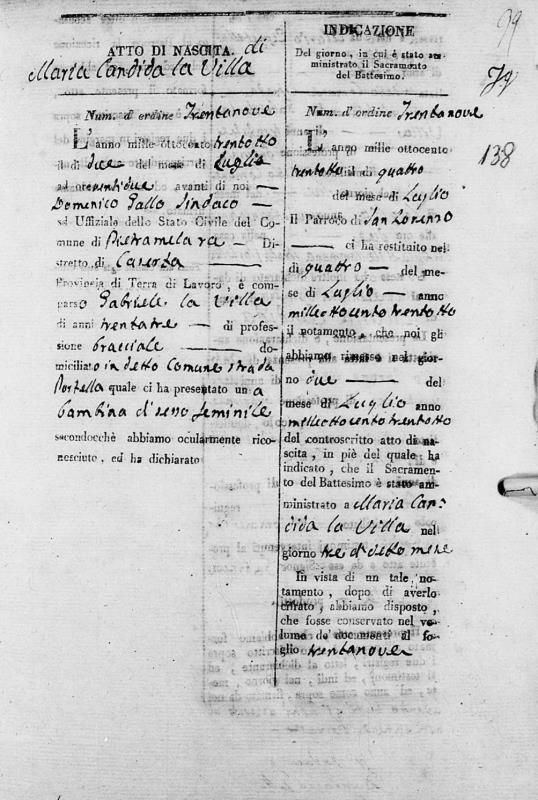 99
39
138
ATTO DI NASCITA di
Maria Candida la Villa
Num. d'ordine Trentanove
L'anno mille ottocento trentotto
il dì due del mese di Luglio
ad ore ventidue avanti di noi —
Domenico Gallo Sindaco —
ed Uffiziale dello Stato Civile del Co-
mune di Pietramelara — Di-
stretto di Caserta —
Provincia di Terra di Lavoro, è com-
parso Gabriele la Villa
di anni trentatre — di profes-
sione bracciale — do-
miciliato in detto Comune strada
Portella quale ci ha presentato una
bambina di sesso feminile
secondocchè abbiamo ocularmente rico-
nosciuto, ed ha dichiarato
INDICAZIONE
Del giorno, in cui è stato am-
ministrato il Sacramento
del Battesimo.
Num. d'ordine Trentanove
L'anno mille ottocento
trentotto il dì quattro
del mese di Luglio
Il Parroco di San Lorenzo
— ci ha restituito nel
dì quattro — del me-
se di Luglio — anno
milleottocento trentotto
il notamento, che noi gli
abbiamo rimesso nel gior-
no due — del
mese di Luglio anno
milleottocento trentotto
del controscritto atto di na-
scita, in piè del quale ha
indicato, che il Sacramen-
to del Battesimo è stato am-
ministrato a Maria Can-
dida la Villa nel
giorno tre di detto mese
In vista di un tale, no-
tamento, dopo di averlo
cifrato, abbiamo disposto,
che fosse conservato nel vo-
lume de' documenti al fo-
glio trentanove